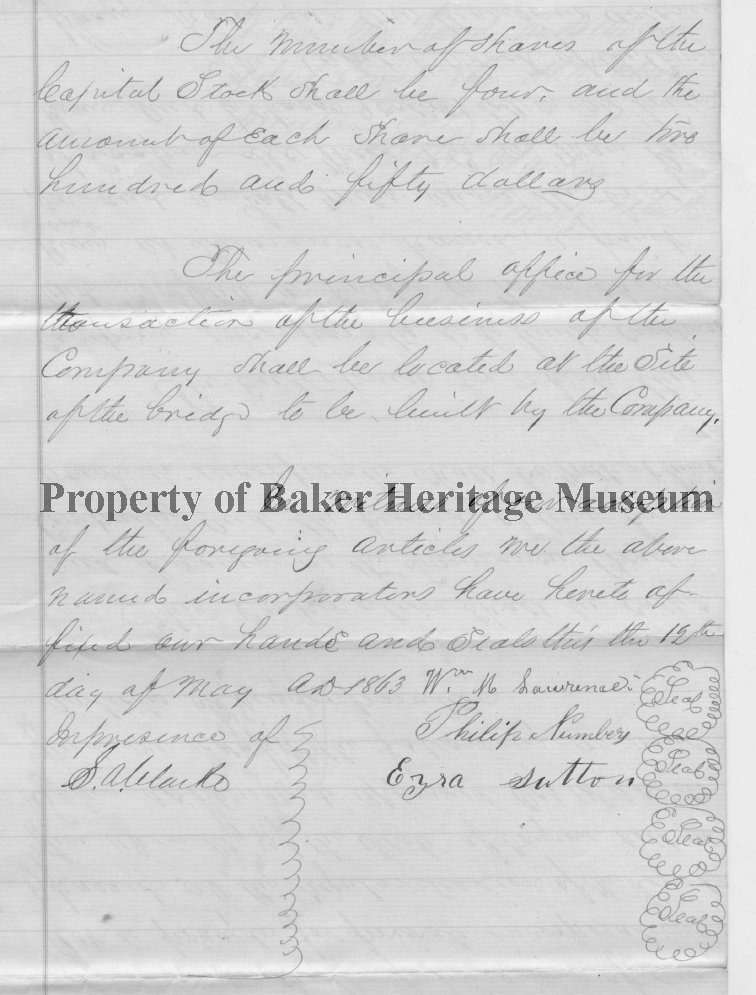 The number of shares of the
Capital Stock shall be four, and the
amount of Each Share shall be two
hundred and fifty dollars
The principal office for the
transaction of the business of the
Company shall be located at the Site
of the bridge to be built by the Company.
In witness of our adoption
Property of Baker Heritage Museum
of the foregoing articles we the above
named incorporators have hereto af-
fixed our hands and Seals this the 12th
day of May AD 1863 Wm H Lawrence Seal
In presence of Philip Numbers Seal
S. A. Clarke Ezra Sutton
Seal
Seal